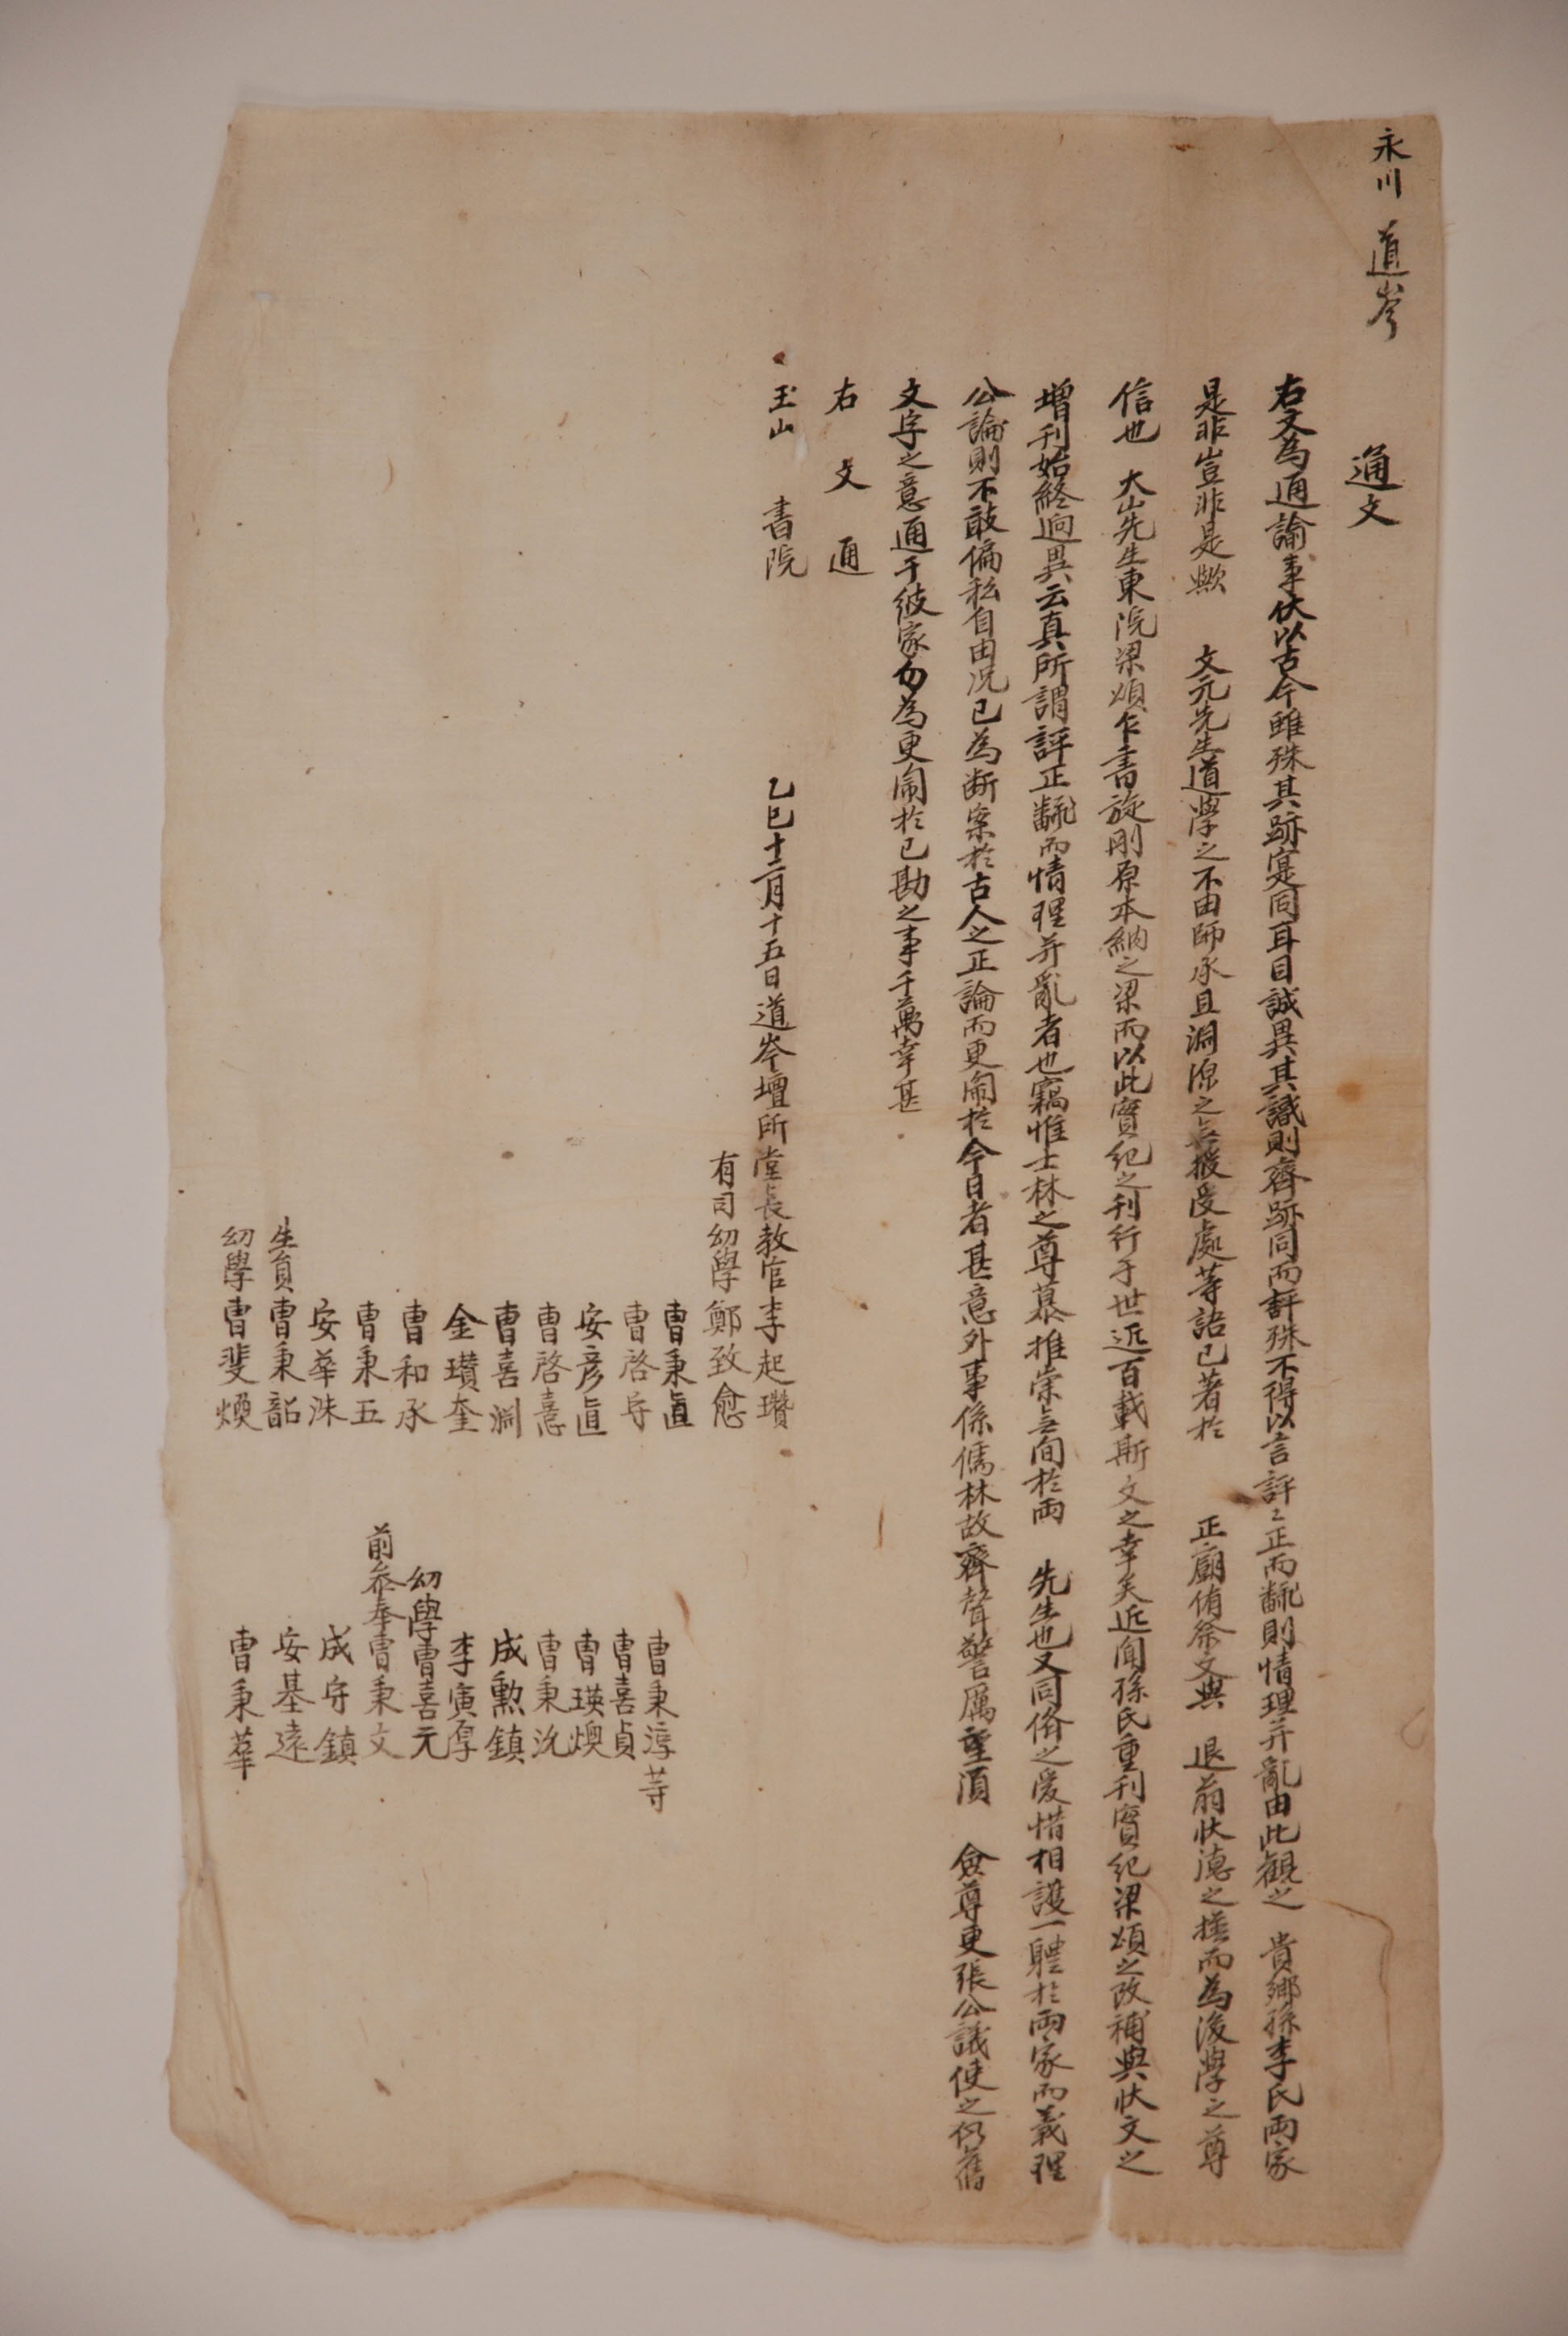 永川 道岑
通文
右文為通諭事伏以古今雖殊其跡寔同耳目誠異其識則齊跡同而評殊不得以言評〻正而飜則情理并亂由此觀之 貴鄉孫李氏兩家
是非豈非是歟 文元先生道學之不由師承且淵源之無授受處等語已著於 正廟侑祭文與 退翁狀德之撰而為後學之尊
信也 大山先生東院梁頌乍書旋刪原本納之梁而以此實紀之刊行于世近百載斯文之幸矣近聞孫氏重刊實紀梁頌之改補與狀文之
增刊始終逈異云真所謂評正飜而情理并亂者也竊惟士林之尊慕推崇無間於兩 先生也又同儕之愛惜相護一體於兩家而義理
公論則不敢偏私自由况已為断案於古人之正論而更鬧於今日者甚意外事係儒林故齊聲警厲望須 僉尊更張公議使之仍舊
文字之意通于彼家勿為更鬧於已勘之事千萬幸甚
右文通
玉山 書院
乙巳十二月十五日道岑壇所堂長教官李起瓚
有司幼學鄭致愈
曺秉直
曺啓承
安彦直
曺啓憙
曺喜淵
金瓚奎
曺和承
曺秉五
安華洙
生員曺秉韶
幼學曺斐煥
曺秉淳等
曺喜貞
曺瑛煥
曺秉沇
成勲鎮
李寅厚
幼學曺喜元
前參奉曺秉文
成守鎮
安基遠
曺秉華